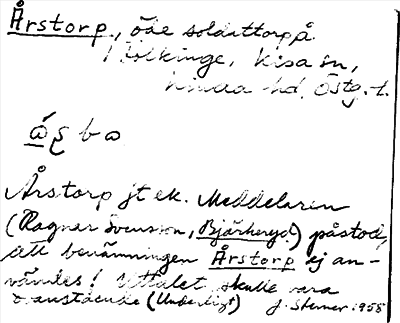 Årstorp, öde soldattorp å
Kölkinge, Kisa sn,
Kinda hd, Östg. l.
Årstorp jt ek. Meddelaren
(Ragnar Svensson, Björkeryd) påstod,
att benämningen Årstorp ej an-
vändes! Uttalet skulle vara
ovanstående (Underligt) J. Stener 1958